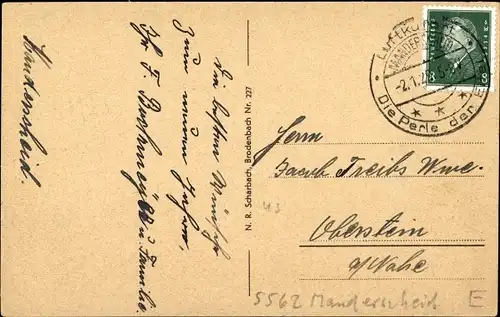 Manderscheid.
Die besten Wünsche
zum neuen Jahre,
Ihr F. u. Familie.
N. R. Scharbach, Brodenbach Nr. 227
Luftkur
MANDER
-2.1.2
Die Perle der E
8 8
Herrn
Jacob Treibs Wwe.
Oberstein
a/Nahe
43
5562 Manderscheid E